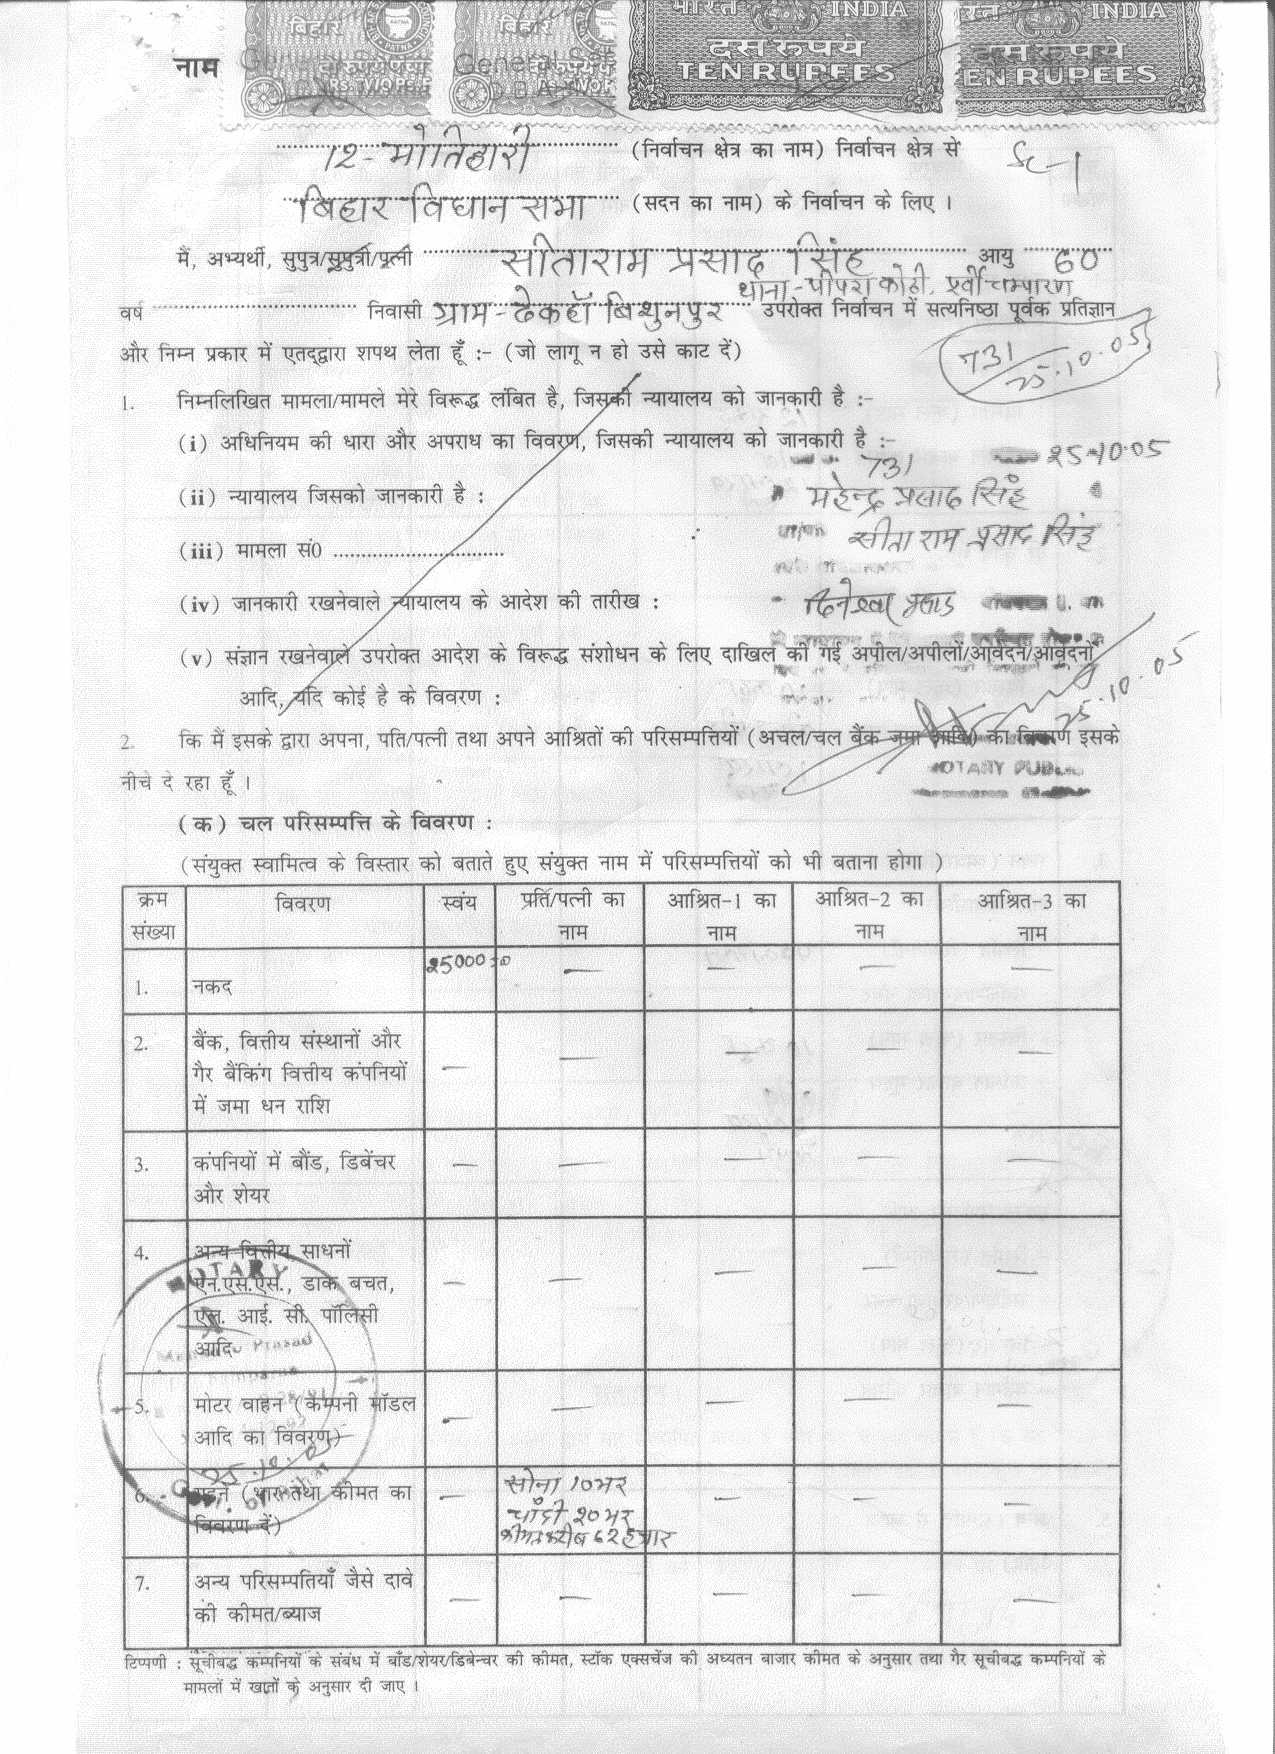 बिहार
बिहार
भारत INDIA
INDIA
दस रूपये
दस रूपये
TEN RUPEES
TEN RUPEES
नाम
12-मोतिहारी (निर्वाचन क्षेत्र का नाम) निर्वाचन क्षेत्र से
बिहार विधान सभा (सदन का नाम) के निर्वाचन के लिए ।
मैं, अभ्यर्थी, सुपुत्र/सुपुत्री/पत्नी सीताराम प्रसाद सिंह आयु 60
थाना-पीपरा कोठी, पूर्वी चम्पारण
वर्ष निवासी ग्राम-ढेकहाँ बिशुनपुर उपरोक्त निर्वाचन में सत्यनिष्ठा पूर्वक प्रतिज्ञान
और निम्न प्रकार में एतद्द्वारा शपथ लेता हूँ :- (जो लागू न हो उसे काट दें)
731
25.10.05
1. निम्नलिखित मामला/मामले मेरे विरूद्ध लंबित है, जिसकी न्यायालय को जानकारी है :-
(i) अधिनियम की धारा और अपराध का विवरण, जिसकी न्यायालय को जानकारी है :-
731 25-10-05
(ii) न्यायालय जिसको जानकारी है : महेन्द्र प्रसाद सिंह
सीता राम प्रसाद सिंह
(iii) मामला सं0 ..............................
(iv) जानकारी रखनेवाले न्यायालय के आदेश की तारीख :
(v) संज्ञान रखनेवाले उपरोक्त आदेश के विरूद्ध संशोधन के लिए दाखिल की गई अपील/अपीलों/आवेदन/आवेदनों
आदि, यदि कोई है के विवरण :
25.10.05
2. कि मैं इसके द्वारा अपना, पति/पत्नी तथा अपने आश्रितों की परिसम्पत्तियों (अचल/चल बैंक जमा आदि) का विवरण इसके
नीचे दे रहा हूँ ।
NOTARY PUBLIC
(क) चल परिसम्पत्ति के विवरण :
(संयुक्त स्वामित्व के विस्तार को बताते हुए संयुक्त नाम में परिसम्पत्तियों को भी बताना होगा )
क्रम संख्या विवरण स्वंय पति/पत्नी का नाम आश्रित-1 का नाम आश्रित-2 का नाम आश्रित-3 का नाम
1. नकद 25000=00 — — — —
2. बैंक, वित्तीय संस्थानों और
गैर बैंकिंग वित्तीय कंपनियों
में जमा धन राशि — — — — —
3. कंपनियों में बौंड, डिबेंचर
और शेयर — — — — —
4. अन्य वित्तीय साधनों
एन.एस.एस., डाक बचत,
एल. आई. सी. पॉलिसी
आदि — — — — —
5. मोटर वाहन (कम्पनी मॉडल
आदि का विवरण) — — — — —
6. गहने (भार तथा कीमत का
विवरण दें) — सोना 10 भर
चाँदी 20 भर
कीमत करीब 62 हजार — — —
7. अन्य परिसम्पतियाँ जैसे दावे
की कीमत/ब्याज — — — — —
NOTARY
25.10.05
टिप्पणी : सूचीबद्ध कम्पनियों के संबंध में बाँड/शेयर/डिबेन्चर की कीमत, स्टॉक एक्सचेंज की अध्यतन बाजार कीमत के अनुसार तथा गैर सूचीबद्ध कम्पनियों के
मामलों में खातों के अनुसार दी जाए ।